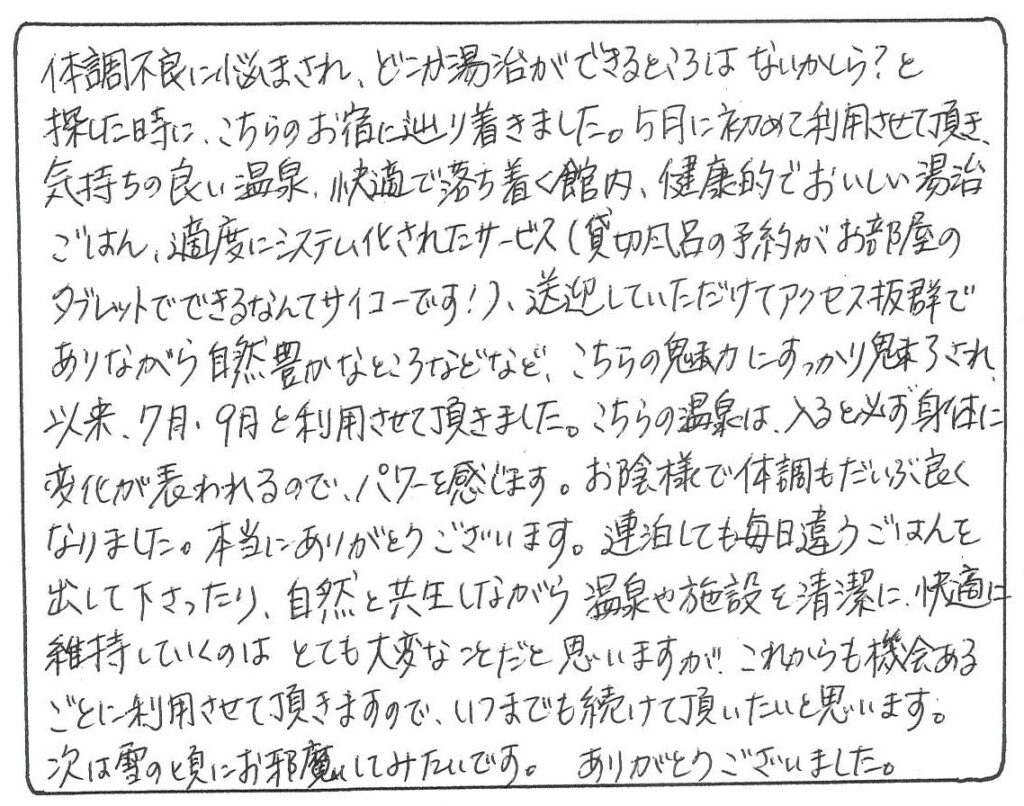 体調不良に悩まされ、どこか湯治ができるところはないかしら?と
探した時に、こちらのお宿に辿り着きました。5月に初めて利用させて頂き、
気持ちの良い温泉、快適で落ち着く館内、健康的でおいしい湯治
ごはん、適度にシステム化されたサービス(貸切風呂の予約がお部屋の
タブレットでできるなんてサイコーです!)、送迎していただけてアクセス抜群で
ありながら自然豊かなところなどなど、こちらの魅力にすっかり魅了され、
以来、7月、9月と利用させて頂きました。こちらの温泉は、入ると必ず身体に
変化が表われるので、パワーを感じます。お陰様で体調もだいぶ良く
なりました。本当にありがとうございます。連泊しても毎日違うごはんを
出して下さったり、自然と共生しながら温泉や施設を清潔に、快適に
維持していくのはとても大変なことだと思いますが、これからも機会ある
ごとに利用させて頂きますので、いつまでも続けて頂いたいと思います。
次は雪の頃にお邪魔してみたいです。 ありがとうございました。